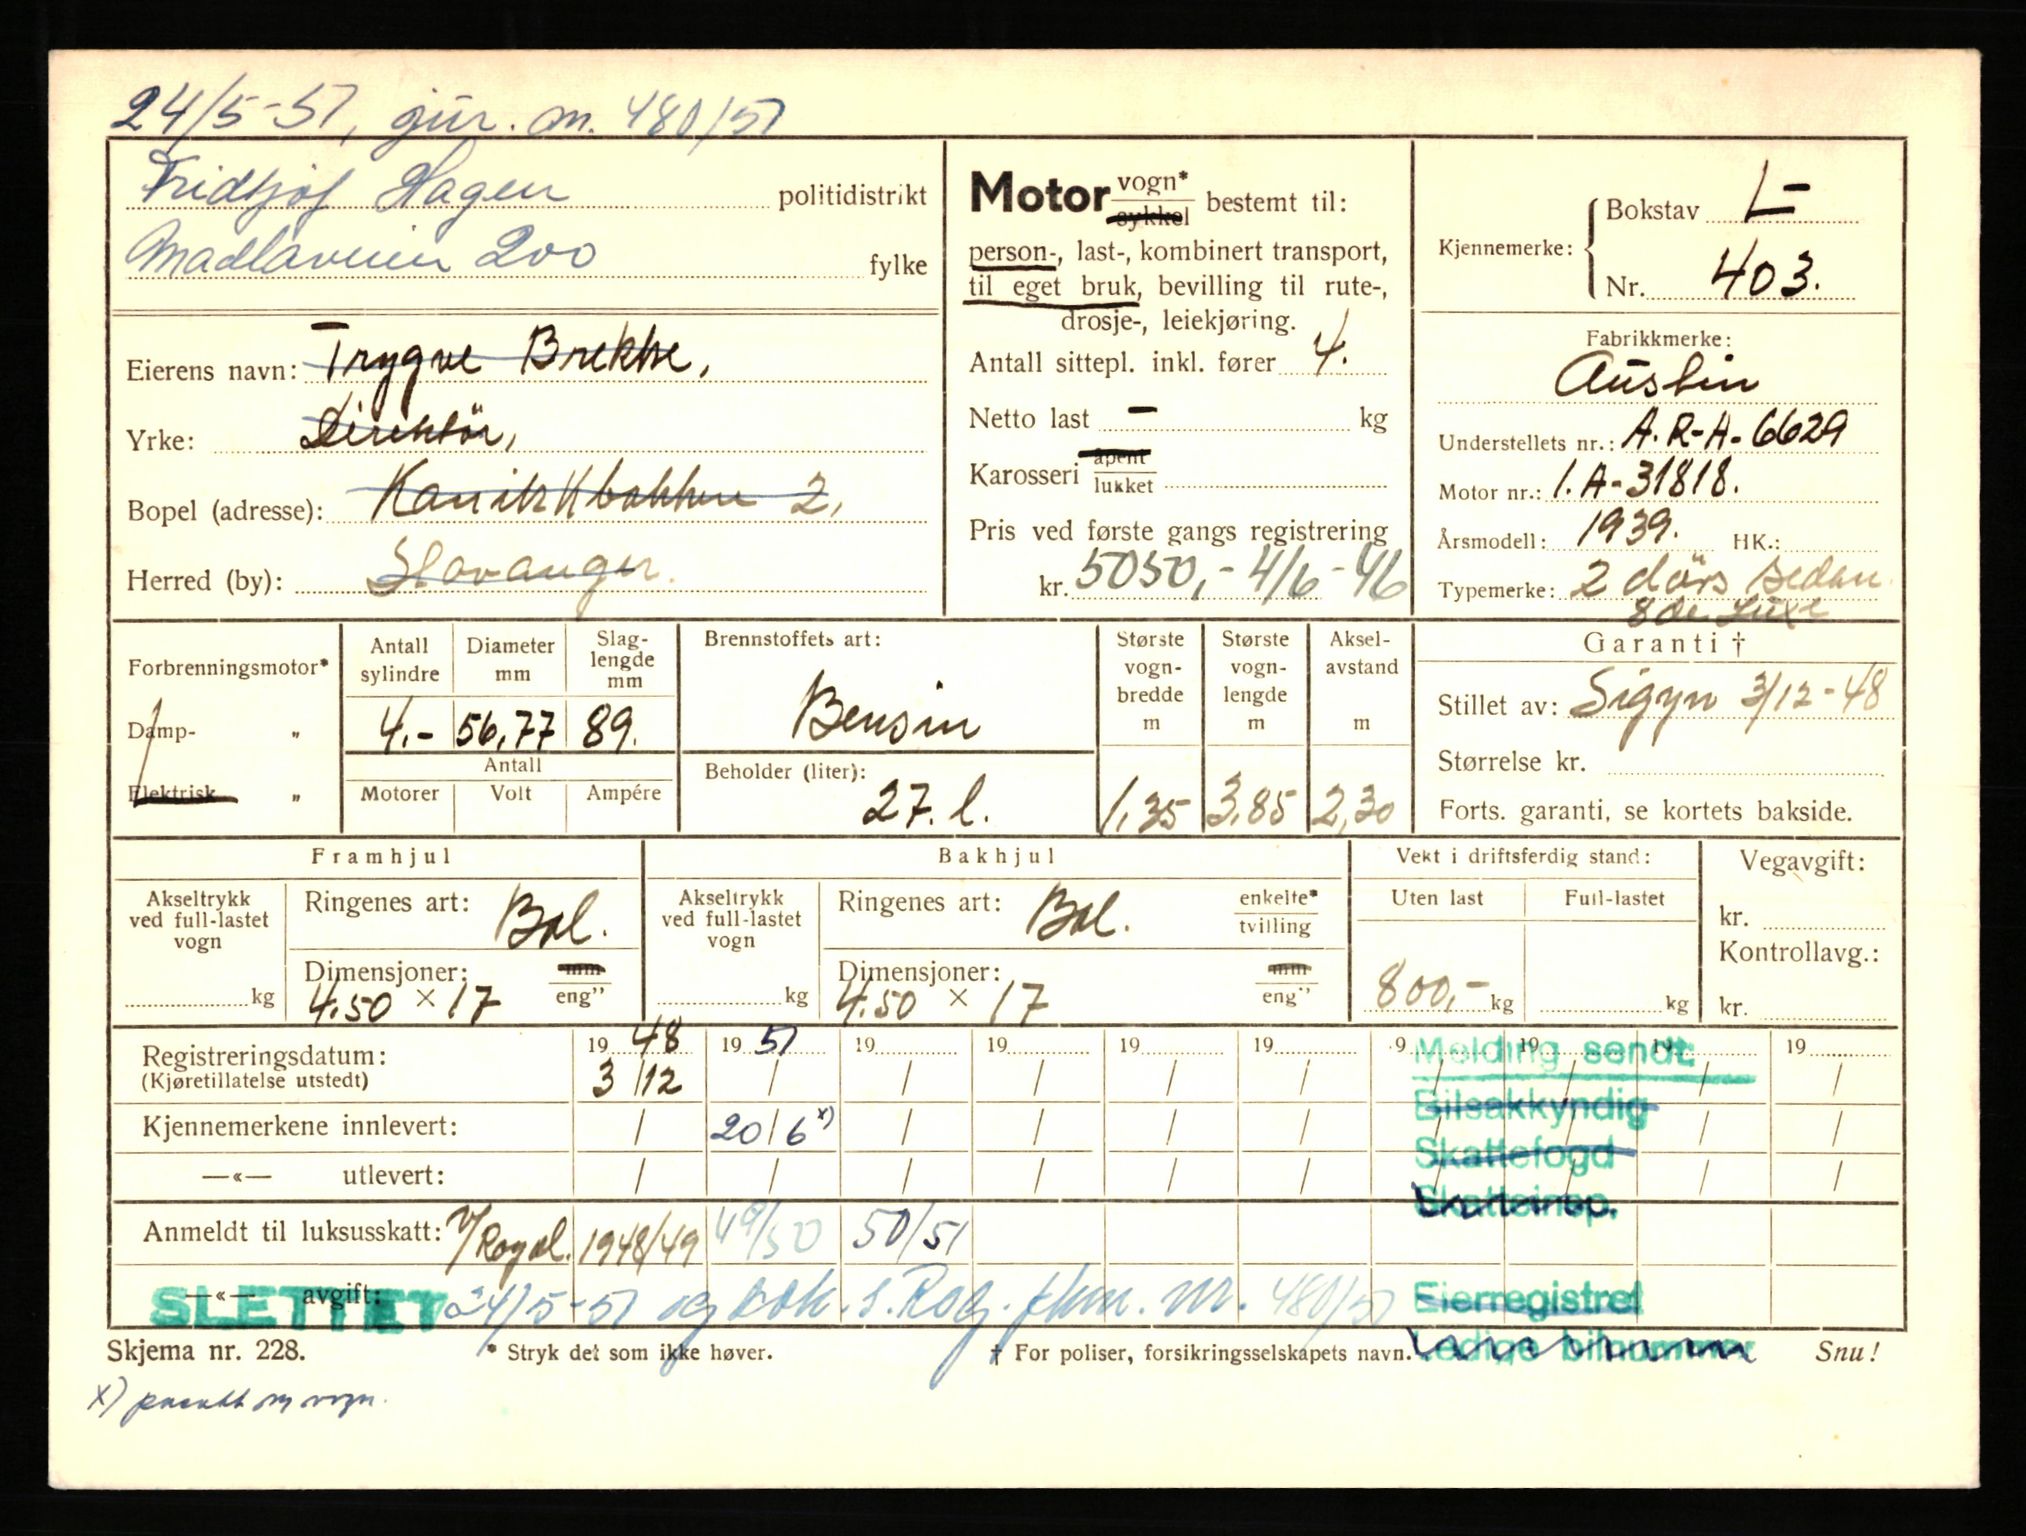 24/5-51, gjur. an. 480/51
Fridtjof Hagen politidistrikt
Madlaveien 200 fylke
Eierens navn: Trygve Brekke,
Yrke: Direktör,
Bopel (adresse): Kanikkbakken 2,
Herred (by): Stavanger.
Motor vogn* sykkel bestemt til:
person-, last-, kombinert transport,
til eget bruk, bevilling til rute-,
drosje-, leiekjøring.
Antall sittepl. inkl. fører 4.
Netto last — kg
Karosseri åpent lukket
Pris ved første gangs registrering
kr. 5050,- 4/6-46
Kjennemerke: Bokstav L-
Nr. 403.
Fabrikkmerke:
Austin
Understellets nr.: A.R-A-6629
Motor nr.: 1.A-31818.
Årsmodell: 1939. HK.:
Typemerke: 2 dörs sedan
8 de Luxe
Forbrenningsmotor*
Damp- „
Elektrisk „
Antall sylindre Diameter mm Slag-lengde mm
4.- 56,77 89.
Antall
Motorer Volt Ampére
Brennstoffets art:
Bensin
Beholder (liter):
27. l.
Største vogn-bredde m Største vogn-lengde m Aksel-avstand m
1,35 3,85 2,30
Garanti †
Stillet av: Sigyn 3/12-48
Størrelse kr.
Forts. garanti, se kortets bakside.
Framhjul
Akseltrykk ved full-lastet vogn kg
Ringenes art: Bal.
Dimensjoner: mm eng"
4.50 × 17
Bakhjul
Akseltrykk ved full-lastet vogn kg
Ringenes art: Bal. enkelte* tvilling
Dimensjoner: mm eng"
4.50 × 17
Vekt i driftsferdig stand:
Uten last Full-lastet
800,- kg kg
Vegavgift:
kr.
Kontrollavg.:
kr.
Registreringsdatum: 19 48 19 51 19 19 19 19 19 19 19 19
(Kjøretillatelse utstedt) 3/12 / / / / / / / / /
Kjennemerkene innlevert: / 20/6 x) / / / / / / / /
—«— utlevert: / / / / / / / / / /
Anmeldt til luksusskatt: V/Rogal. 1948/49 49/50 50/51
—«— avgift: 24/5-51 og bok. s. Rog. fkm. nr. 480/51
SLETTET
Melding sendt:
Bilsakkyndig
Skattefogd
Skatteinsp.
Eierregistret
Ledige bilnummer
Skjema nr. 228. * Stryk det som ikke høver. † For poliser, forsikringsselskapets navn. Snu!
x) påsatt ny vogn.